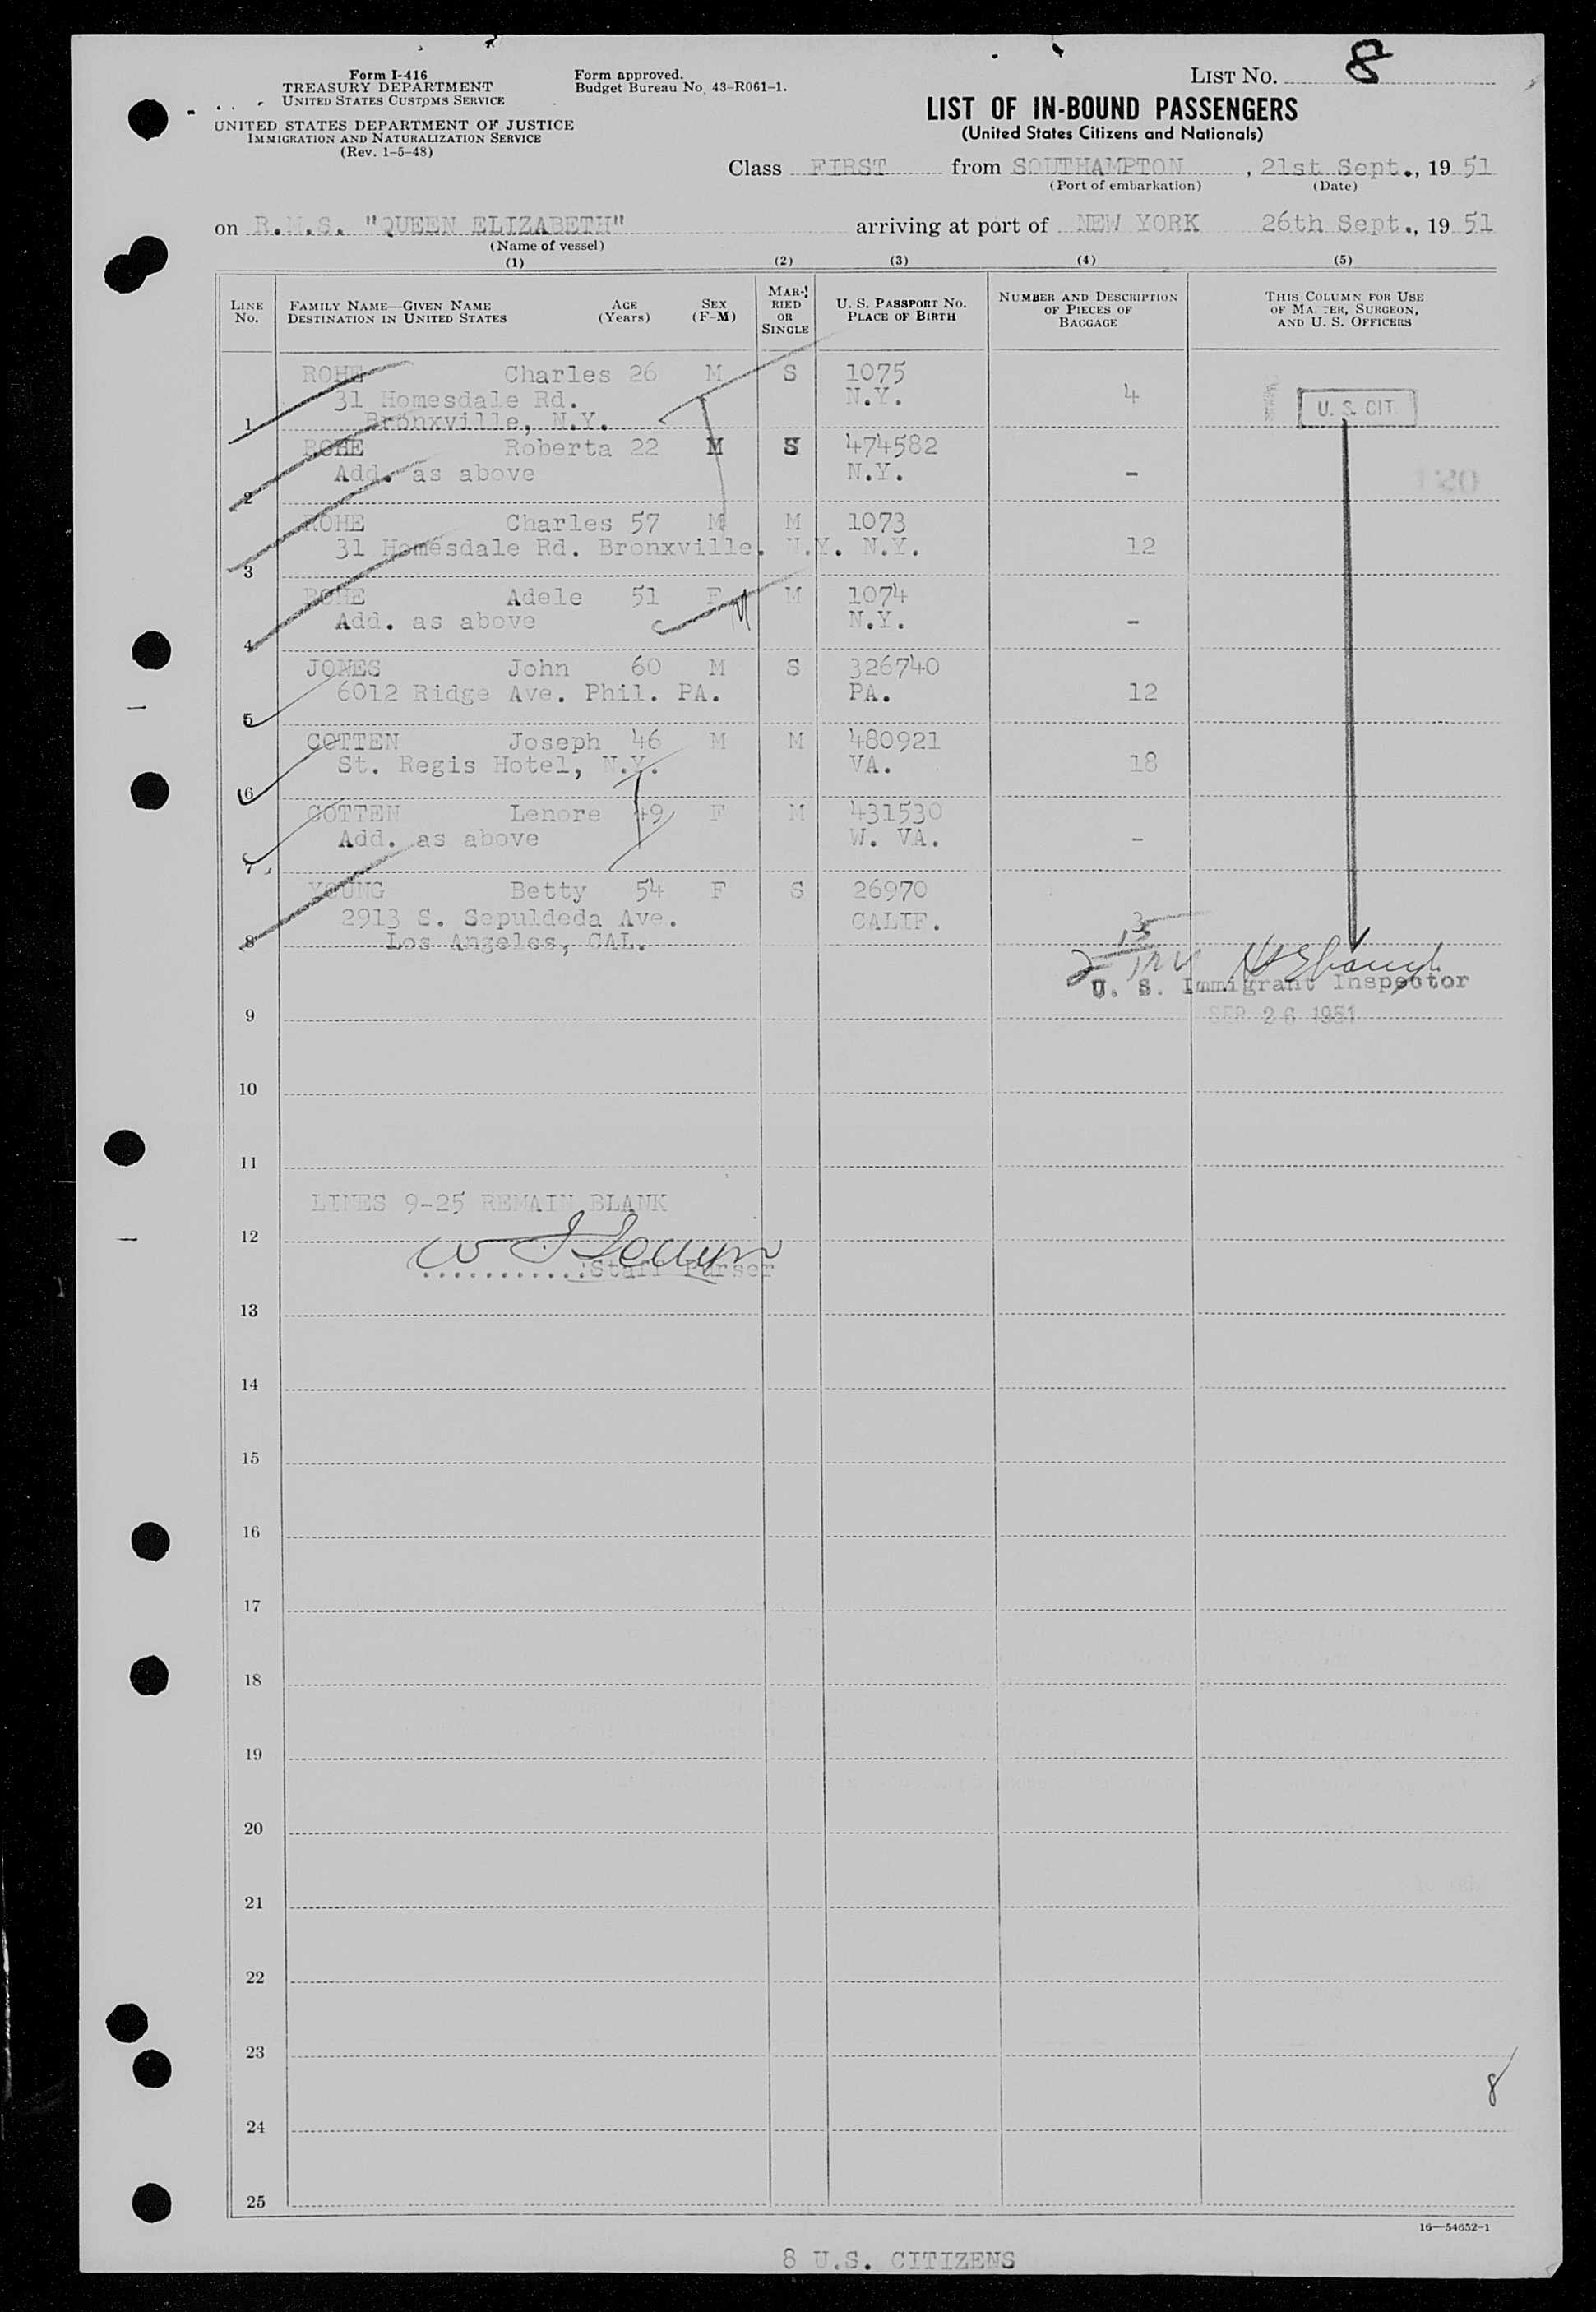 Form I-416
TREASURY DEPARTMENT
UNITED STATES CUSTOMS SERVICE
UNITED STATES DEPARTMENT OF JUSTICE
IMMIGRATION AND NATURALIZATION SERVICE
(Rev. 1-5-48)
Form approved.
Budget Bureau No. 43-R061-1.
LIST NO. 8
LIST OF IN-BOUND PASSENGERS
(United States Citizens and Nationals)
Class FIRST from SOUTHAMPTON, 21st Sept., 1951
(Port of embarkation) (Date)
on R.M.S. "QUEEN ELIZABETH" arriving at port of NEW YORK 26th Sept., 1951
(Name of vessel)
(1) (2) (3) (4) (5)
LINE NO. FAMILY NAME—GIVEN NAME DESTINATION IN UNITED STATES AGE (Years) SEX (F-M) MARRIED OR SINGLE U. S. PASSPORT NO. PLACE OF BIRTH NUMBER AND DESCRIPTION OF PIECES OF BAGGAGE THIS COLUMN FOR USE OF MASTER, SURGEON, AND U. S. OFFICERS
ROHE Charles 26 M S 1075
31 Homesdale Rd. N.Y. 4 U. S. CIT.
1 Bronxville, N.Y.
ROHE Roberta 22 M S 474582
2 Add. as above N.Y. -
ROHE Charles 57 M M 1073
3 31 Homesdale Rd. Bronxville. N.Y. N.Y. 12
ROHE Adele 51 F M 1074
4 Add. as above N.Y. -
JONES John 60 M S 326740
5 6012 Ridge Ave. Phil. PA. PA. 12
COTTEN Joseph 46 M M 480921
6 St. Regis Hotel, N.Y. VA. 18
COTTEN Lenore 49 F M 431530
7 Add. as above W. VA. -
YOUNG Betty 54 F S 26970
2913 S. Sepuldeda Ave. CALIF. 3
8 Los Angeles, CAL.
U. S. Immigrant Inspector
9 SEP 26 1951
10
11
LINES 9-25 REMAIN BLANK
12
Staff Purser
13
14
15
16
17
18
19
20
21
22
23
8
24
25
16—54652-1
8 U.S. CITIZENS